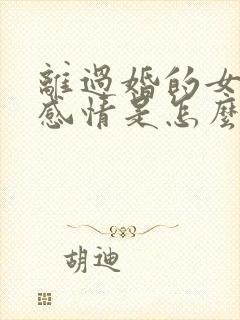 離過婚的女
感情是怎麼
胡迪